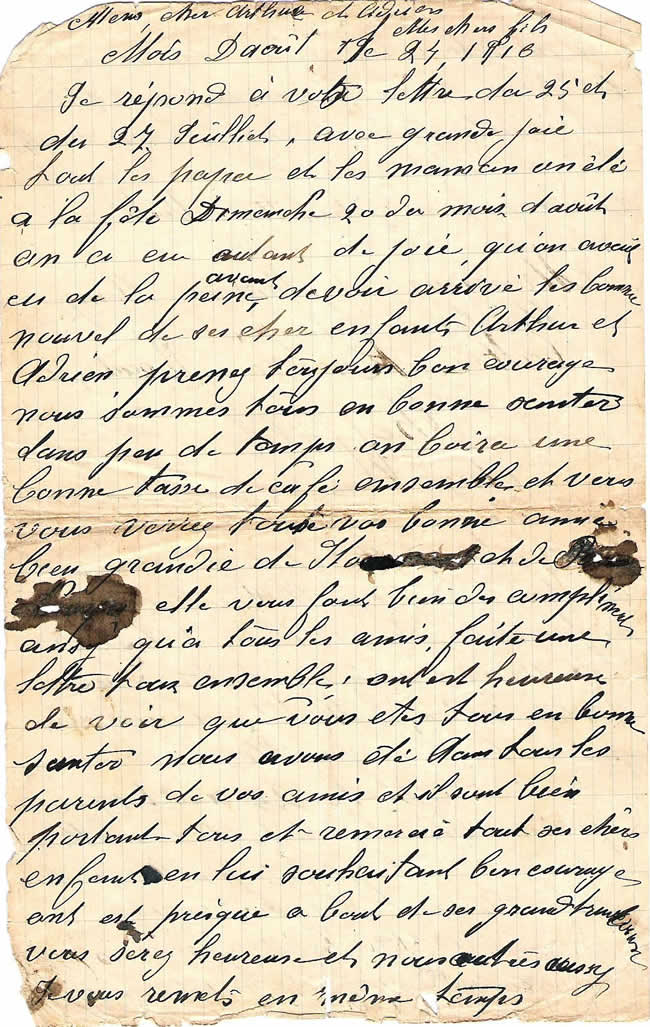 Mens cher Arthur et Adrien
Mes chers fils
Mois Daoût le 24, 1916
Je répond a votre lettre du 25 et
du 27 Juilliet, avec grande joie
tout les papa et les maman on été
a la fête Dimanche 20 du mois d'août
on a eu autant de joie, qu'on avait
eu de la peine, avant devoir arrivé les bonne
nouvel de ses cher enfants Arthur et
Adrien prenez toujours bon courage
nous sommes tous en bonne senter
dans peu de temps on boira une
bonne tasse de café ensemble et vers
vous verrez toute vos bonne amie
bien grandie de et de
elle vous font bien des compliments
ansy qu'a tous les amis, faite une
lettre tous ensemble, ont est heureuse
de voir que vous etes tous en bonne
senter nous avons été dans tous les
parents de vos amis et il sont bien
portant tous et remercie tout ses chèrs
enfants en lui souhaitant bon courage
ont est presque a bout de ses grand
vous serez heureuse et nous autres aussy
Je vous remets en même temps